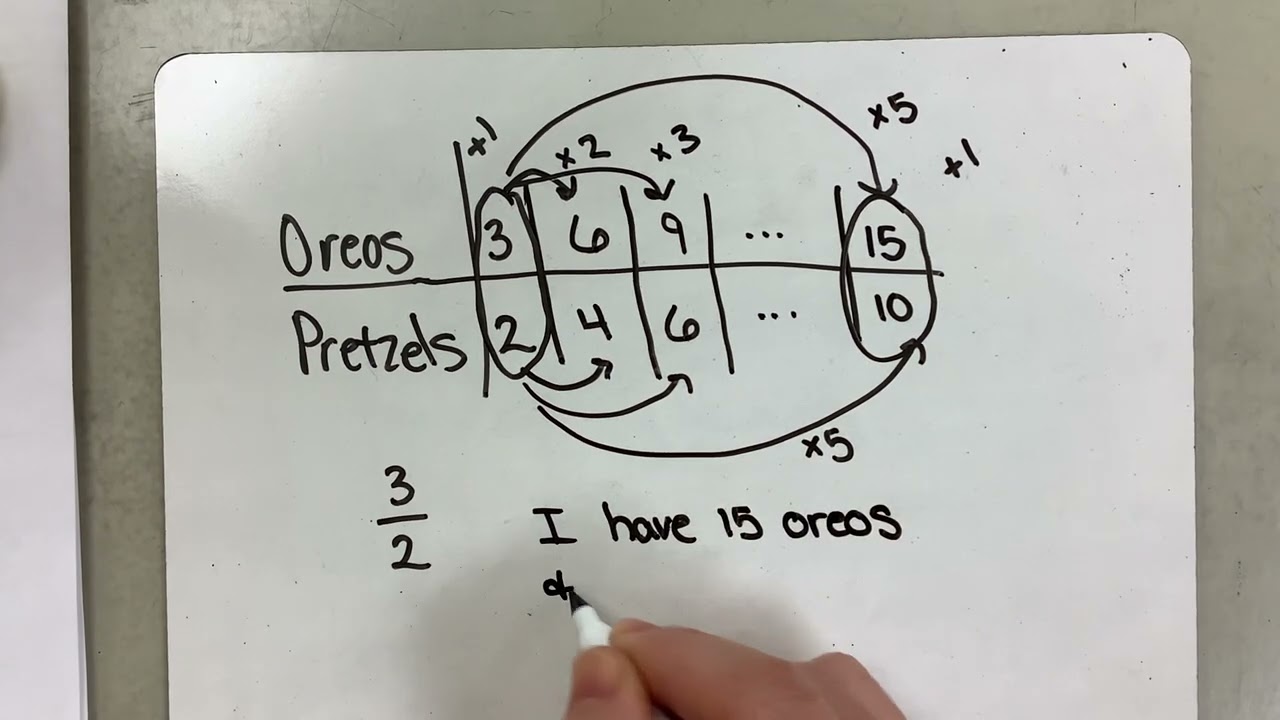 ×1 ×2 ×3 ×5 ×1
Oreos 3 6 9 ... 15
Pretzels 2 4 6 ... 10
×5
3
2
I have 15 oreos